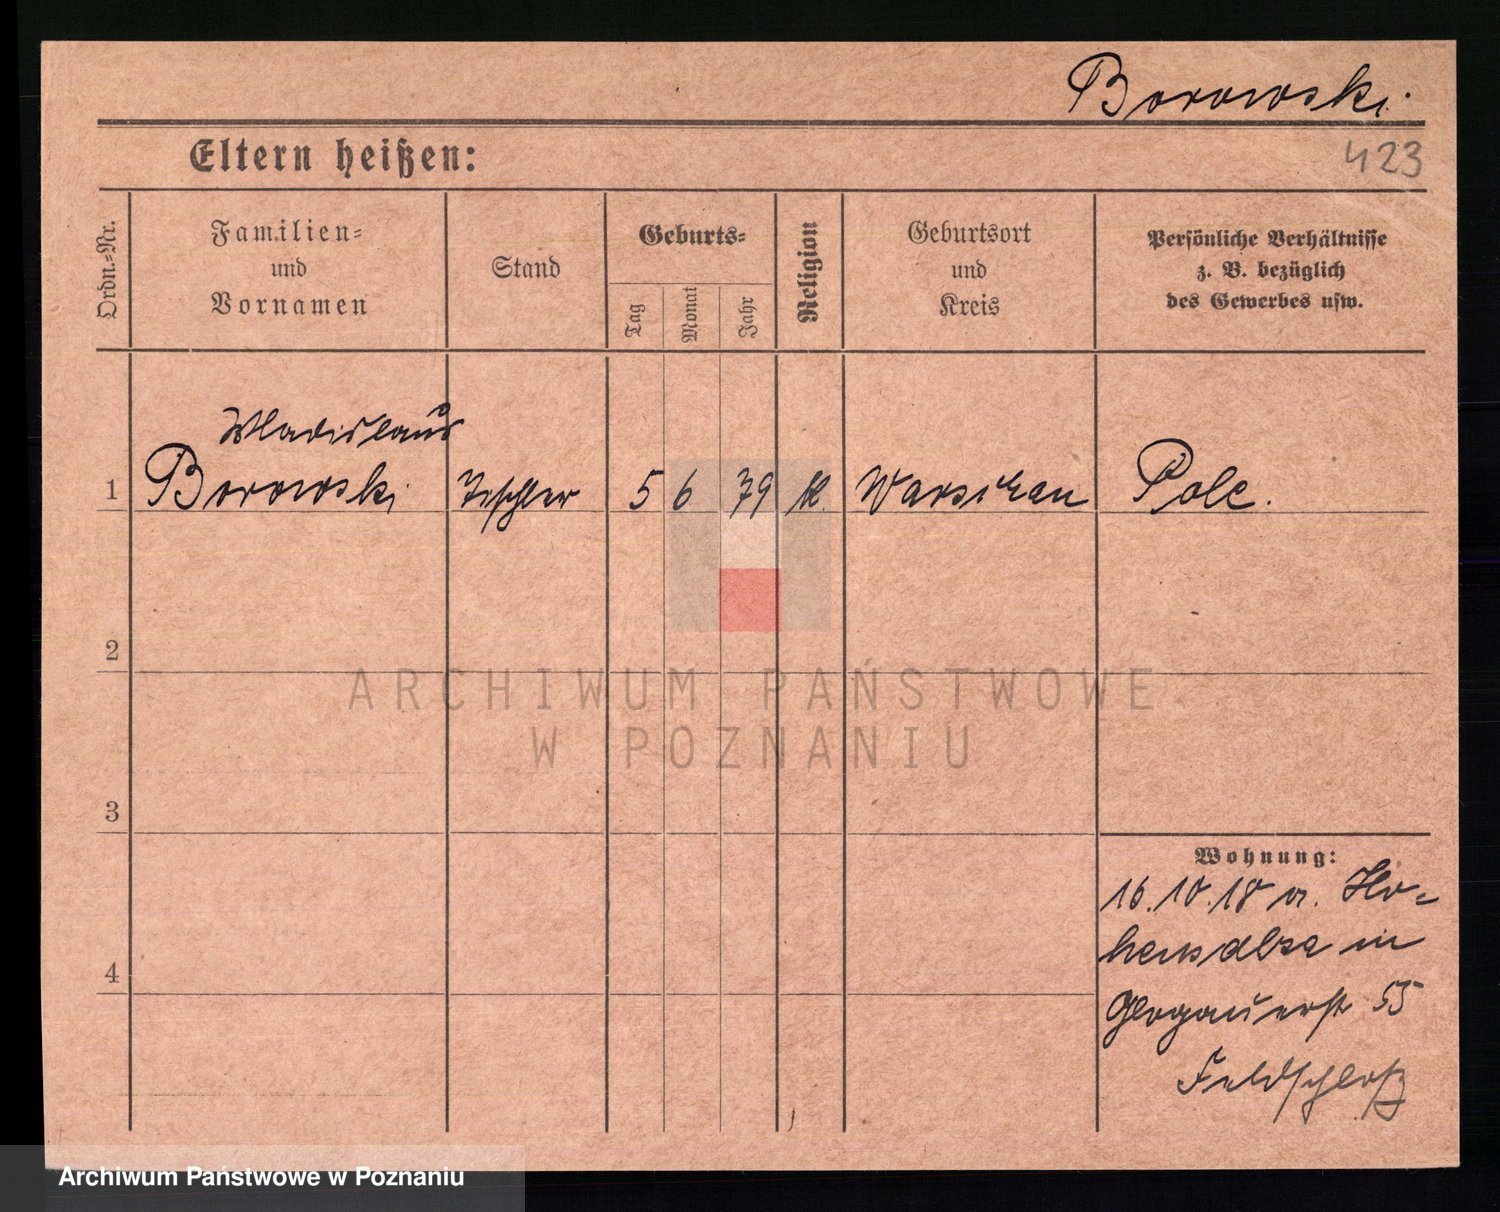 Borowski.
Eltern heißen:
423
Ordn.-Nr.
Familien-
und
Vornamen
Stand
Geburts-
Tag
Monat
Jahr
Religion
Geburtsort
und
Kreis
Persönliche Verhältnisse
z. B. bezüglich
des Gewerbes usw.
Wladislaus
1 Borowski Tischler 5 6 79 k. Warschau Pole.
2
ARCHIWUM PAŃSTWOWE
W POZNANIU
3
Wohnung:
16.10.18 a. Ho-
hensalza in
Glogauerstr 55
4
Feldschloß
Archiwum Państwowe w Poznaniu